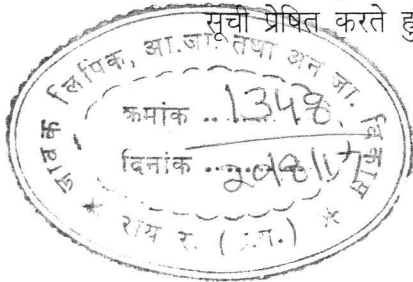 सूची प्रेषित करते हु
जावक लिपिक, आ.जा. तथा अन जा. विकास
क्रमांक .. 1348
दिनांक
राय